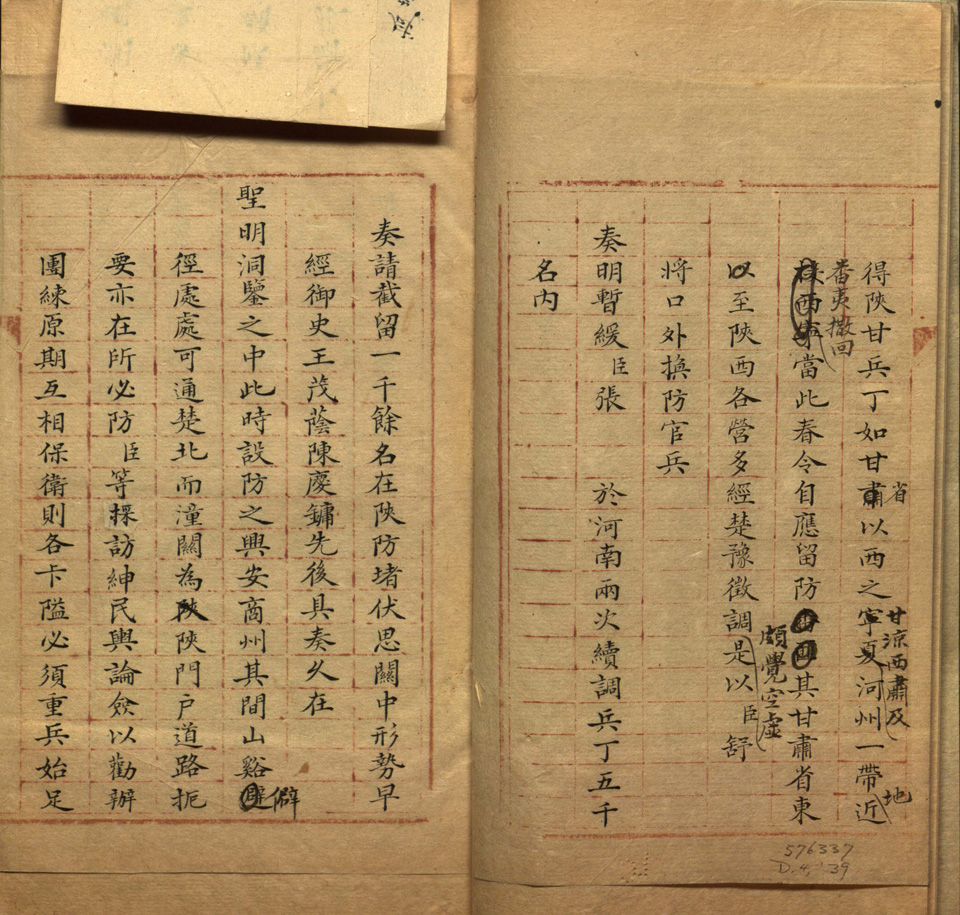 得陝甘兵丁如甘肅省以西之甘涼西肅及寧夏河州一帶地近
番夷撤回
西寧當此春令自應留防其甘肅省東
以至陝西各營多經楚豫徵調頗覺空虛是以臣舒
將口外換防官兵
奏明暫緩臣張 於河南兩次續調兵丁五千
名內
奏請截留一千餘名在陝防堵伏思關中形勢早
經御史王茂蔭陳慶鏞先後具奏久在
聖明洞鑒之中此時設防之興安商州其間山谿僻
徑處處可通楚北而潼關為陝門戶道路扼
要亦在所必防臣等採訪紳民輿論僉以勸辦
團練原期互相保衛則各卡隘必須重兵始足
576337
D.4,'39